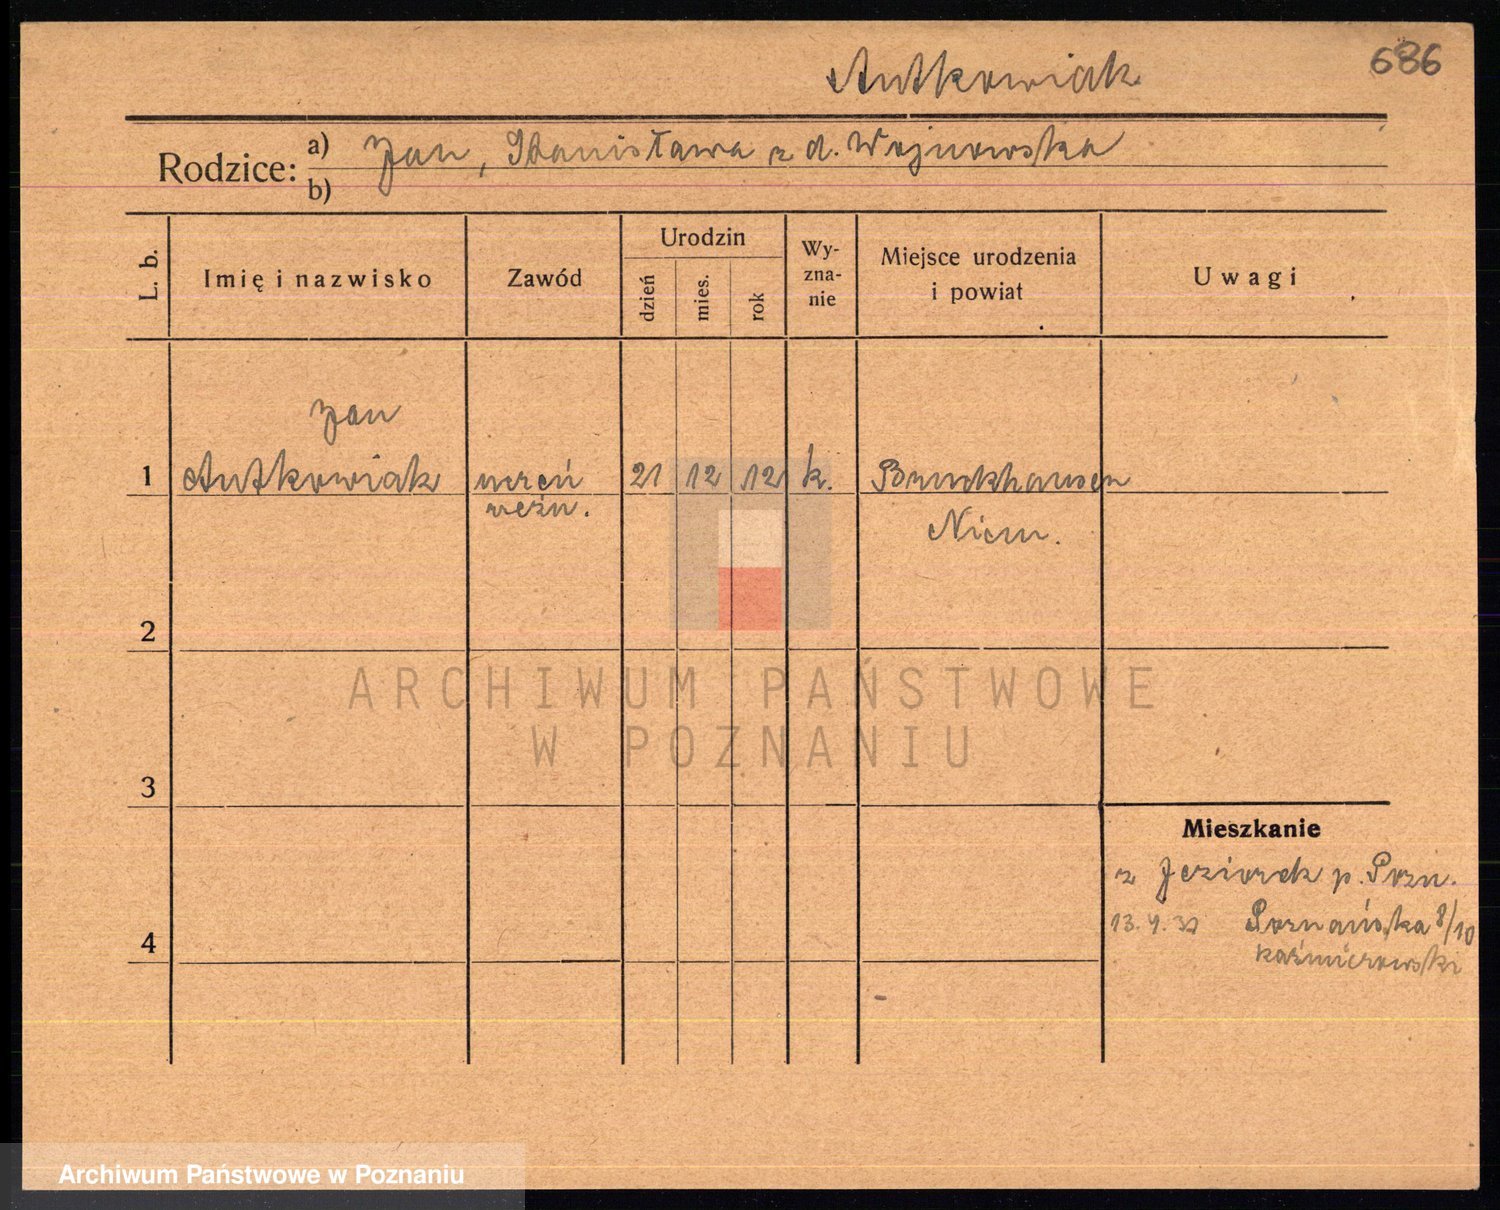 686
Antkowiak
Rodzice: a) Jan, Stanisława z d. Wojnowska
b)
L. b.
Imię i nazwisko
Zawód
Urodzin
dzień
mies.
rok
Wy-
zna-
nie
Miejsce urodzenia
i powiat
Uwagi
Jan
1 Antkowiak uczeń 21 12 12 k. Bruckhausen
rzeźn. Niem.
2
3
4
Mieszkanie
z Jeziorek p. Pozn.
13. 4. Poznańska 8/10
Kaźmierowski
ARCHIWUM PAŃSTWOWE
W POZNANIU
Archiwum Państwowe w Poznaniu